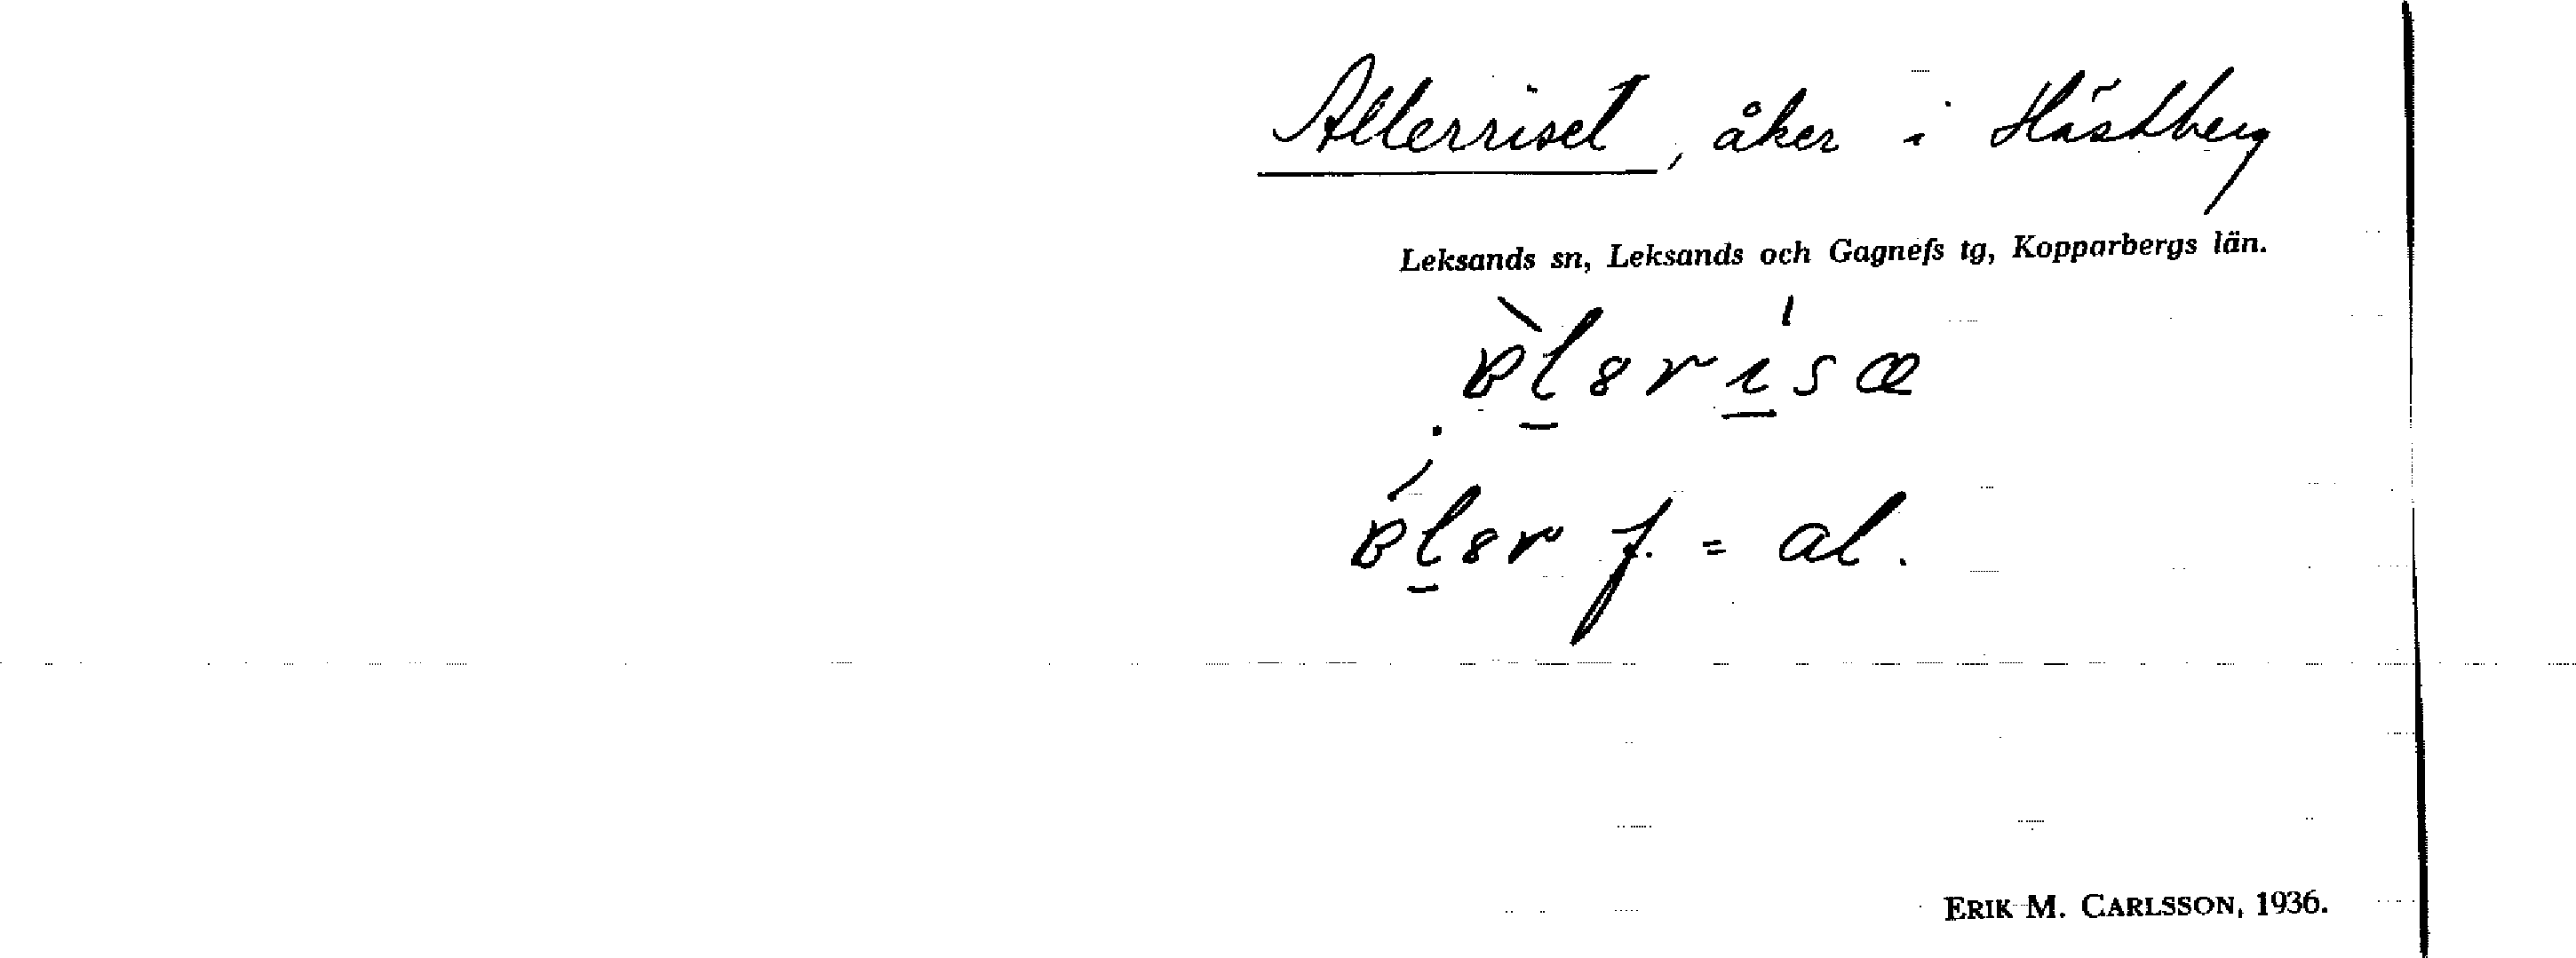 Allerriset, åker i Hästberg
Leksands sn, Leksands och Gagnefs tg, Kopparbergs län.
f. = al.
ERIK M. CARLSSON, 1936.